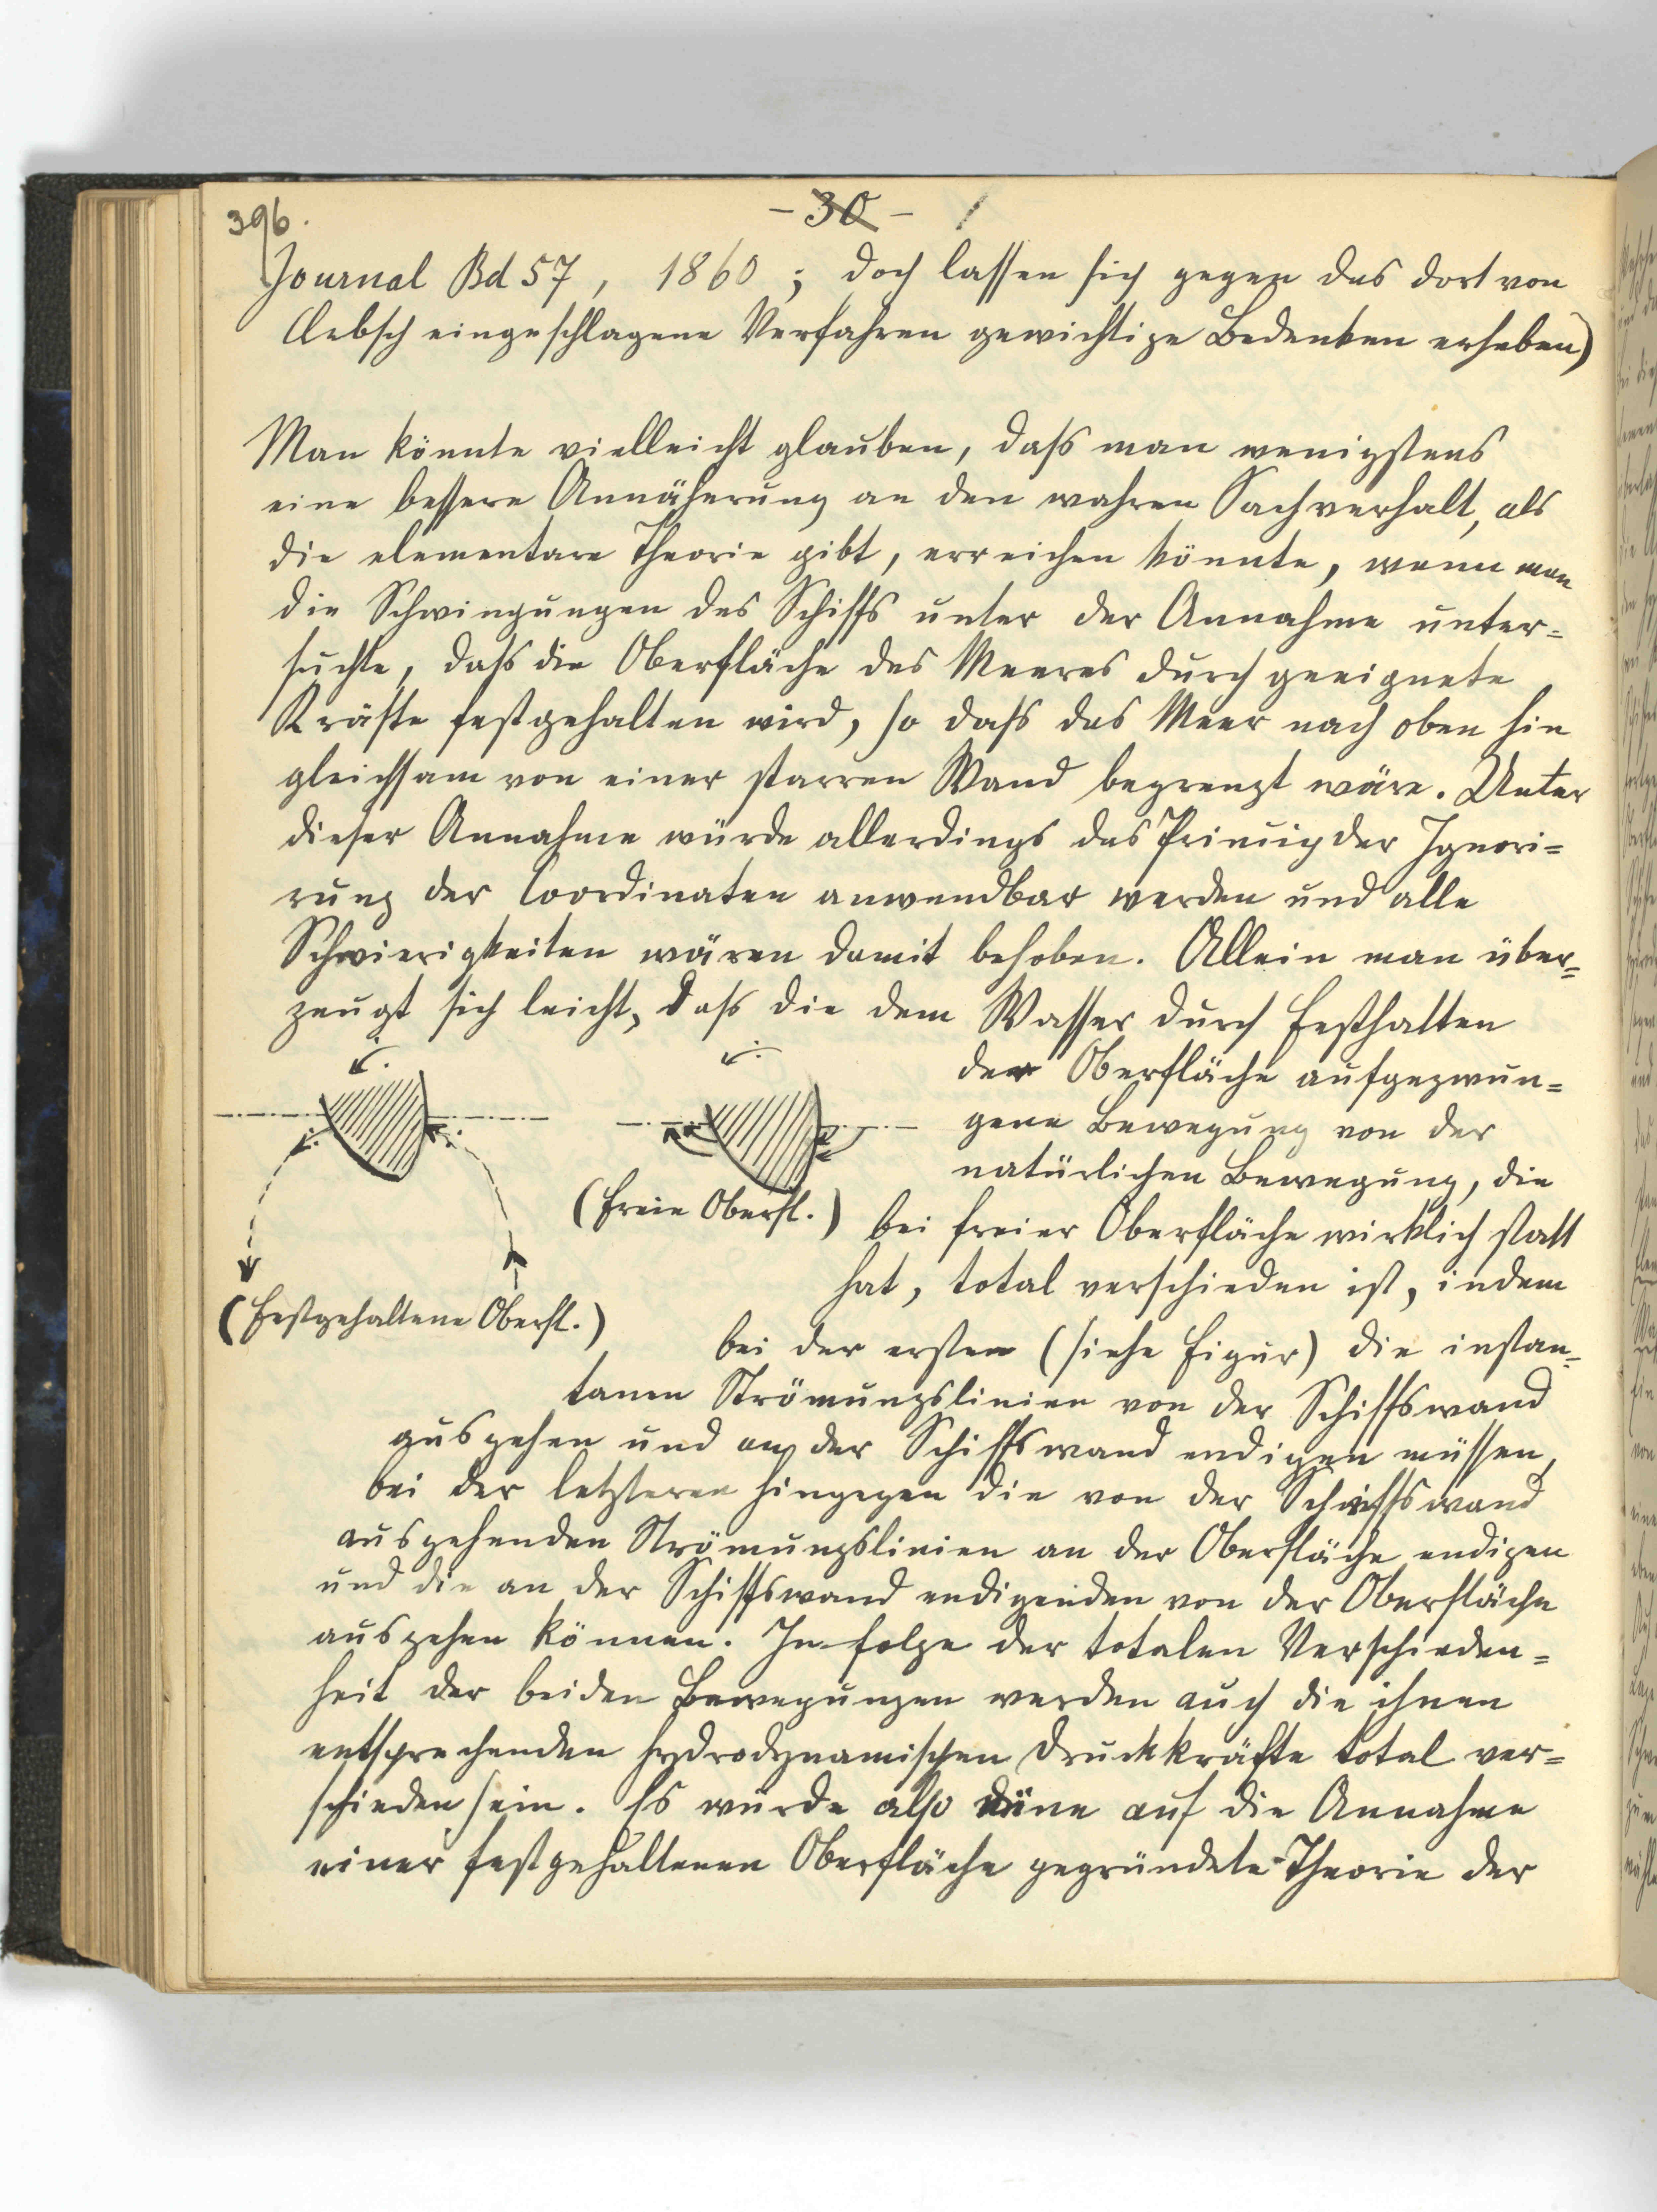 396.
- 30 - /
Journal Bd 57, 1860; doch lassen sich gegen das dort von
Clebsch eingeschlagene Verfahren gewichtige Bedenken erheben)
Man könnte vielleicht glauben, dass man wenigstens
eine bessere Annäherung an den wahren Sachverhalt, als
die elementare Theorie gibt, erreichen könnte, wenn man
die Schwingungen des Schiffs unter der Annahme unter=
suchte, dass die Oberfläche des Meeres durch geeignete
Kräfte festgehalten wird, so dass das Meer nach oben hin
gleichsam von einer starren Wand begrenzt wäre. Unter
dieser Annahme würde allerdings das Princip der Ignori=
rung der Coordinaten anwendbar werden und alle
Schwierigkeiten wären damit behoben. Allein man über=
zeugt sich leicht, dass die dem Wasser durch Festhalten
der Oberfläche aufgezwun=
gene Bewegung von der
natürlichen Bewegung, die
(Freie Oberfl.) bei freier Oberfläche wirklich statt
hat, total verschieden ist, indem
(Festgehaltene Oberfl.)
bei der ersten (siehe Figur) die instan=
tanen Strömungslinien von der Schiffswand
ausgehen und an der Schiffswand endigen müssen,
bei der letzteren hingegen die von der Schiffswand
ausgehenden Strömungslinien an der Oberfläche endigen
und die an der Schiffswand endigenden von der Oberfläche
ausgehen können. In folge der totalen Verschieden=
heit der beiden Bewegungen werden auch die ihnen
entsprechenden hydrodynamischen Druckkräfte total ver=
schieden sein. Es würde also eine auf die Annahme
einer festgehaltenen Oberfläche gegründete Theorie der